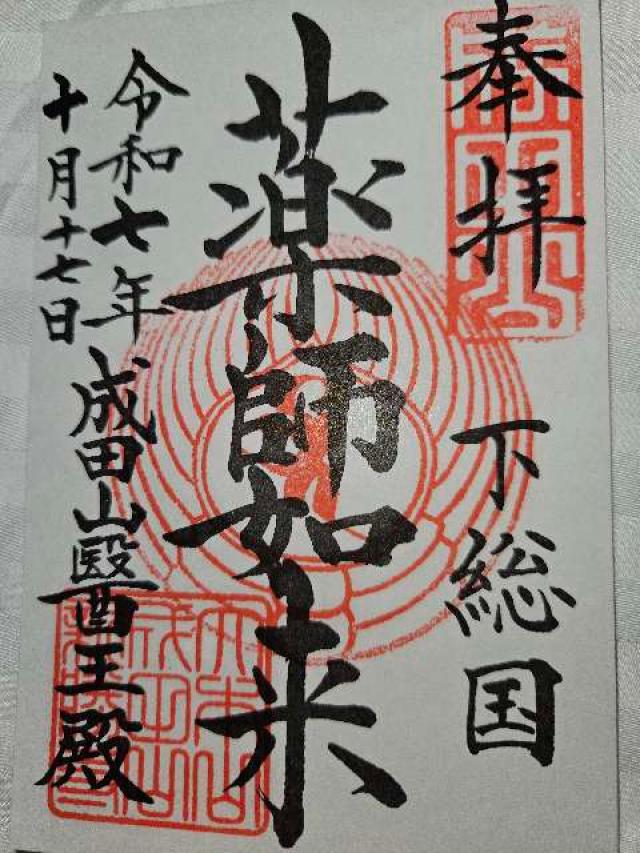 奉拝
下総国
薬師如来
成田山醫王殿
令和七年
十月十七日